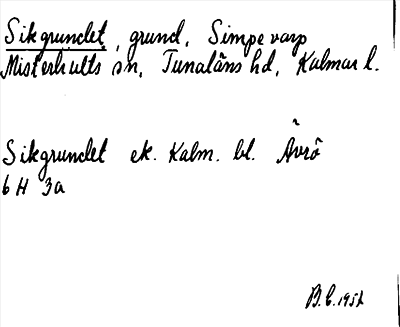 Sikgrundet, grund, Simpevarp
Misterhults sn, Tunaläns hd, Kalmar l.
Sikgrundet ek. Kalm. bl. Ävrö
6 H 3a
B.C. 195